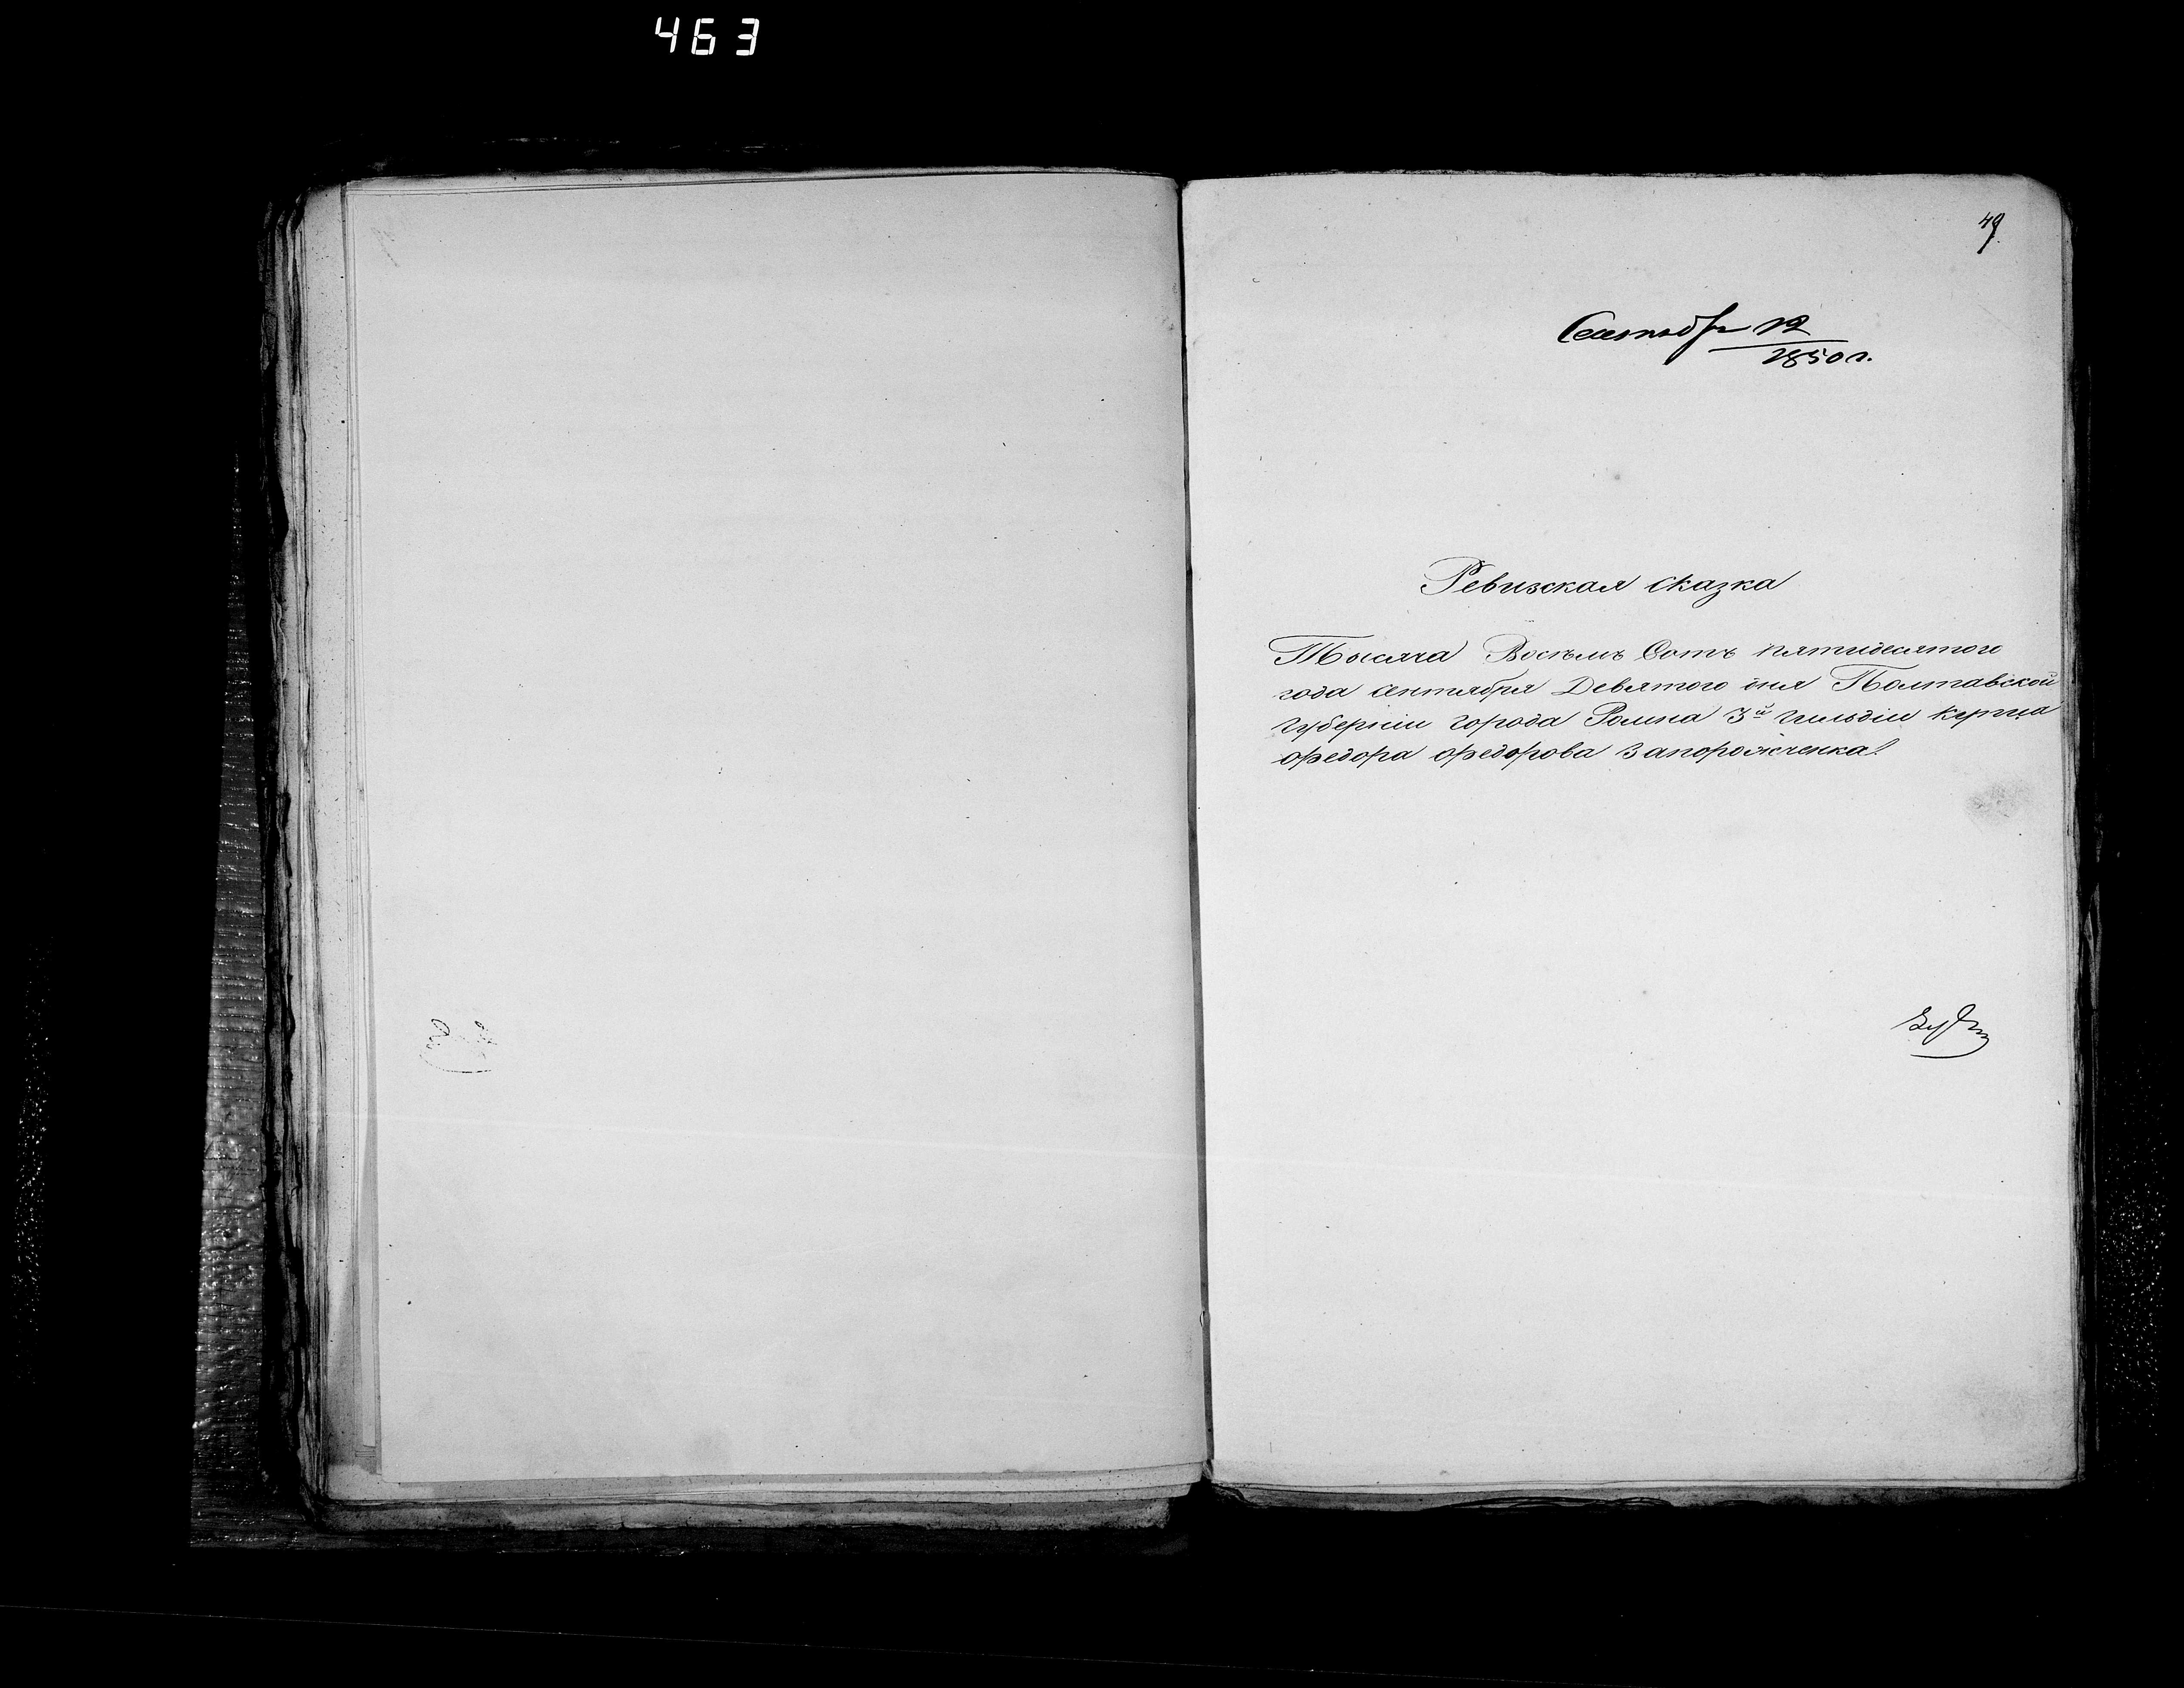 463
49.
Сентября 12
1850 г.
Ревизская сказка
Тысяча Восемь Сотъ пятидесятого
года Сентября Девятого дня Полтавской
Губерніи города Ромна 3й гильдіи купца
Федора Федорова Запорожченка.